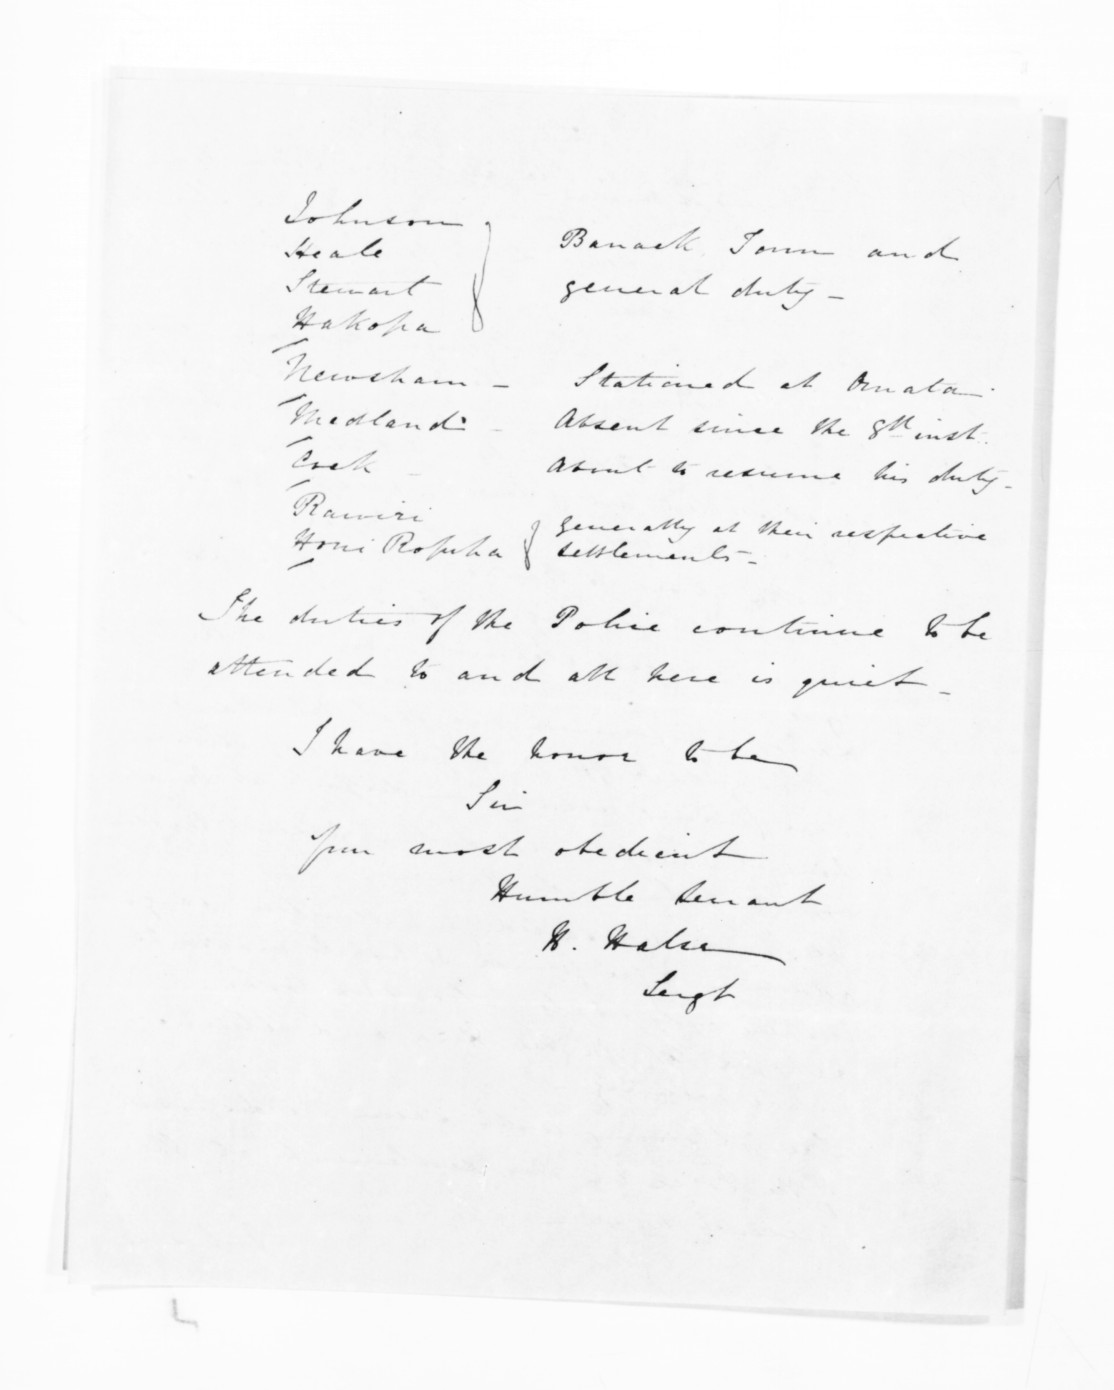 Johnson
Heale
Stewart
Hakopa
Barrack Town and
general duty -
Newsham - Stationed at Omata
Medland - Absent since the 8th inst.
Cock - About to resume his duty -
Rawiri
Honi Ropiha
generally at their respective
settlements -
The duties of the Police continue to be
attended to and all here is quiet -
I have the honor to be
Sir
Your most obedient
Humble Servant
H. Halse
Sergt